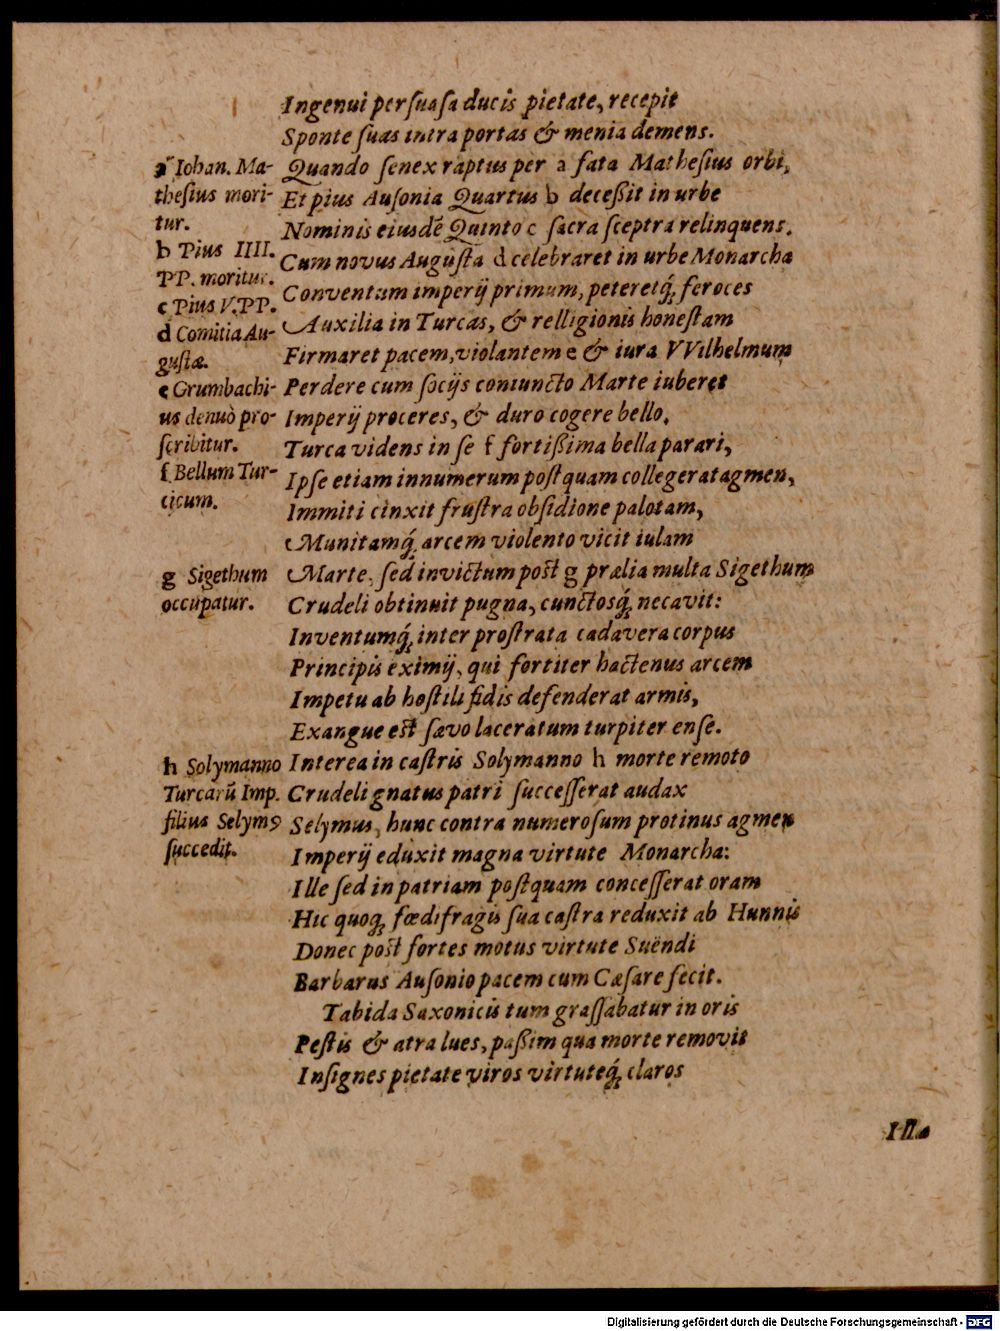 Ingenui perſuaſa ducis pietate, recepit
Sponte ſuas intra portas & menia demens.
Quando ſenex raptus per a fata Matheſius orbi,
Et pius Auſonia Quartus b deceßit in urbe
Nominis eiusdē Quinto c ſacra ſceptra relinquens.
Cum novus Auguſta d celebraret in urbe Monarcha
Conventum imperij primum, peteretq́; feroces
Auxilia in Turcas, & relligionis honeſtam
Firmaret pacem, violantem e & iura VVilhelmum
Perdere cum ſocijs coniuncto Marte iuberet
Imperij proceres, & duro cogere bello,
Turca videns in ſe f fortißima bella parari,
Ipſe etiam innumerum poſtquam collegerat agmen,
Immiti cinxit fruſtra obſidione palotam,
Munitamq́; arcem violento vicit iulam
Marte, ſed invictum poſt g prælia multa Sigethum
Crudeli obtinuit pugna, cunctosq́; necavit:
Inventumq́; inter proſtrata cadavera corpus
Principis eximij, qui fortiter hactenus arcem
Impetu ab hoſtili fidis defenderat armis,
Exangue eſt ſævo laceratum turpiter enſe.
Interea in caſtris Solymanno h morte remoto
Crudeli gnatus patri ſucceſſerat audax
Selymus, hunc contra numeroſum protinus agmen
Imperij eduxit magna virtute Monarcha:
Ille ſed in patriam poſtquam conceſſerat oram
Hic quoq; fœdifragis ſua caſtra reduxit ab Hunnis
Donec poſt fortes motus virtute Suëndi
Barbarus Auſonio pacem cum Cæſare fecit.
Tabida Saxonicis tum graſſabatur in oris
Peſtis & atra lues, paßim qua morte removit
Inſignes pietate viros virtuteq́; claros
a Iohan. Ma-
theſius mori-
tur.
b Pius IIII.
PP. moritur.
c Pius V. PP.
d Comitia Au-
guſtæ.
e Grumbachi-
us denuò pro-
ſcribitur.
f Bellum Tur-
cicum.
g Sigethum
occupatur.
h Solymanno
Turcarū Imp.
filius Selymꝰ
ſuccedit.
Digitalisierung gefördert durch die Deutsche Forschungsgemeinschaft - DFG